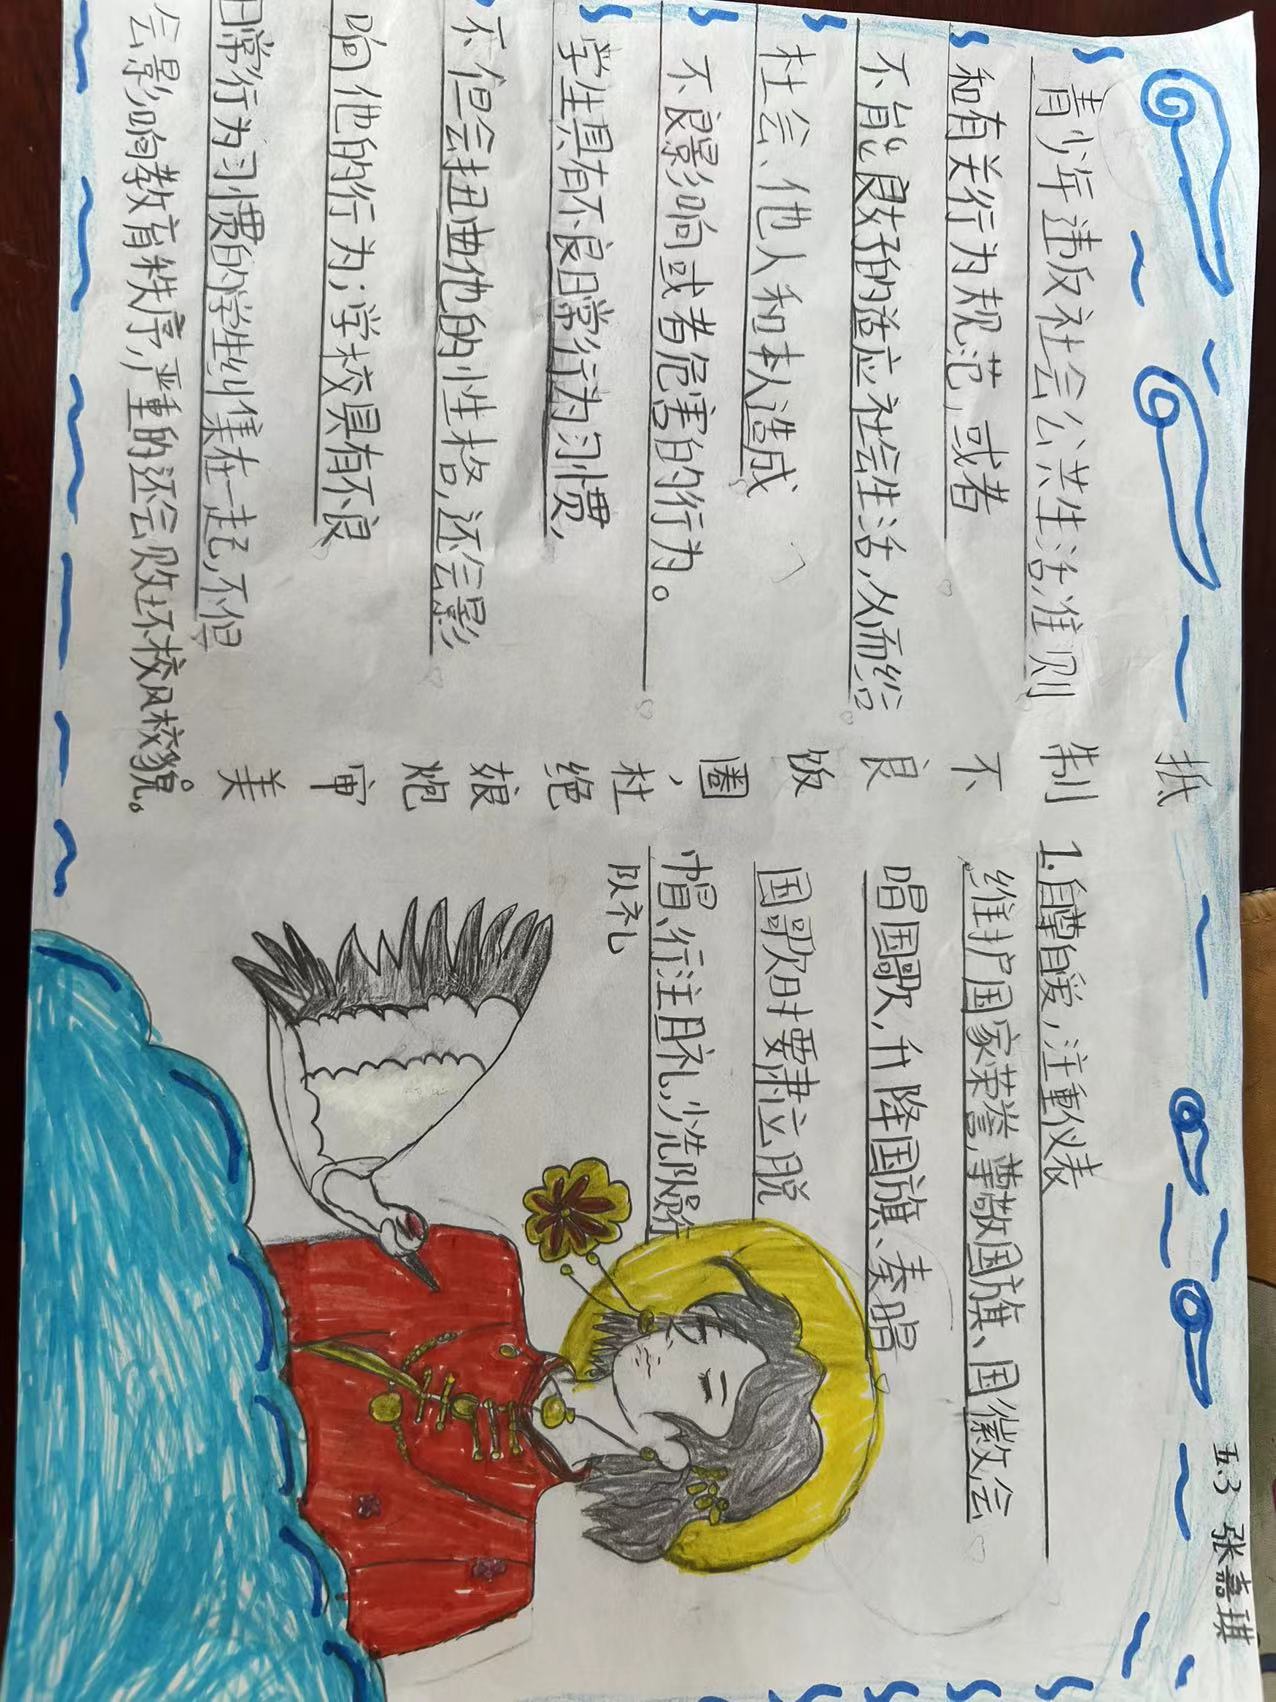 五.3 张嘉琪
抵制不良饭圈，杜绝娘炮审美
青少年违反社会公共生活,准则
和有关行为规范,或者
不能良好的适应社会生活,从而给
社会、他人和本人造成
不良影响或者危害的行为。
学生具有不良日常行为习惯,
不但会扭曲他的性格,还会影
响他的行为;学校具有不良
日常行为习惯的学生纠集在一起,不但
会影响教育秩序,严重的还会败坏校风校貌。
1.自尊自爱,注重仪表
维护国家荣誉,尊敬国旗、国徽会
唱国歌,升降国旗、奏唱
国歌时要肃立脱
帽、行注目礼,少先队员行
队礼